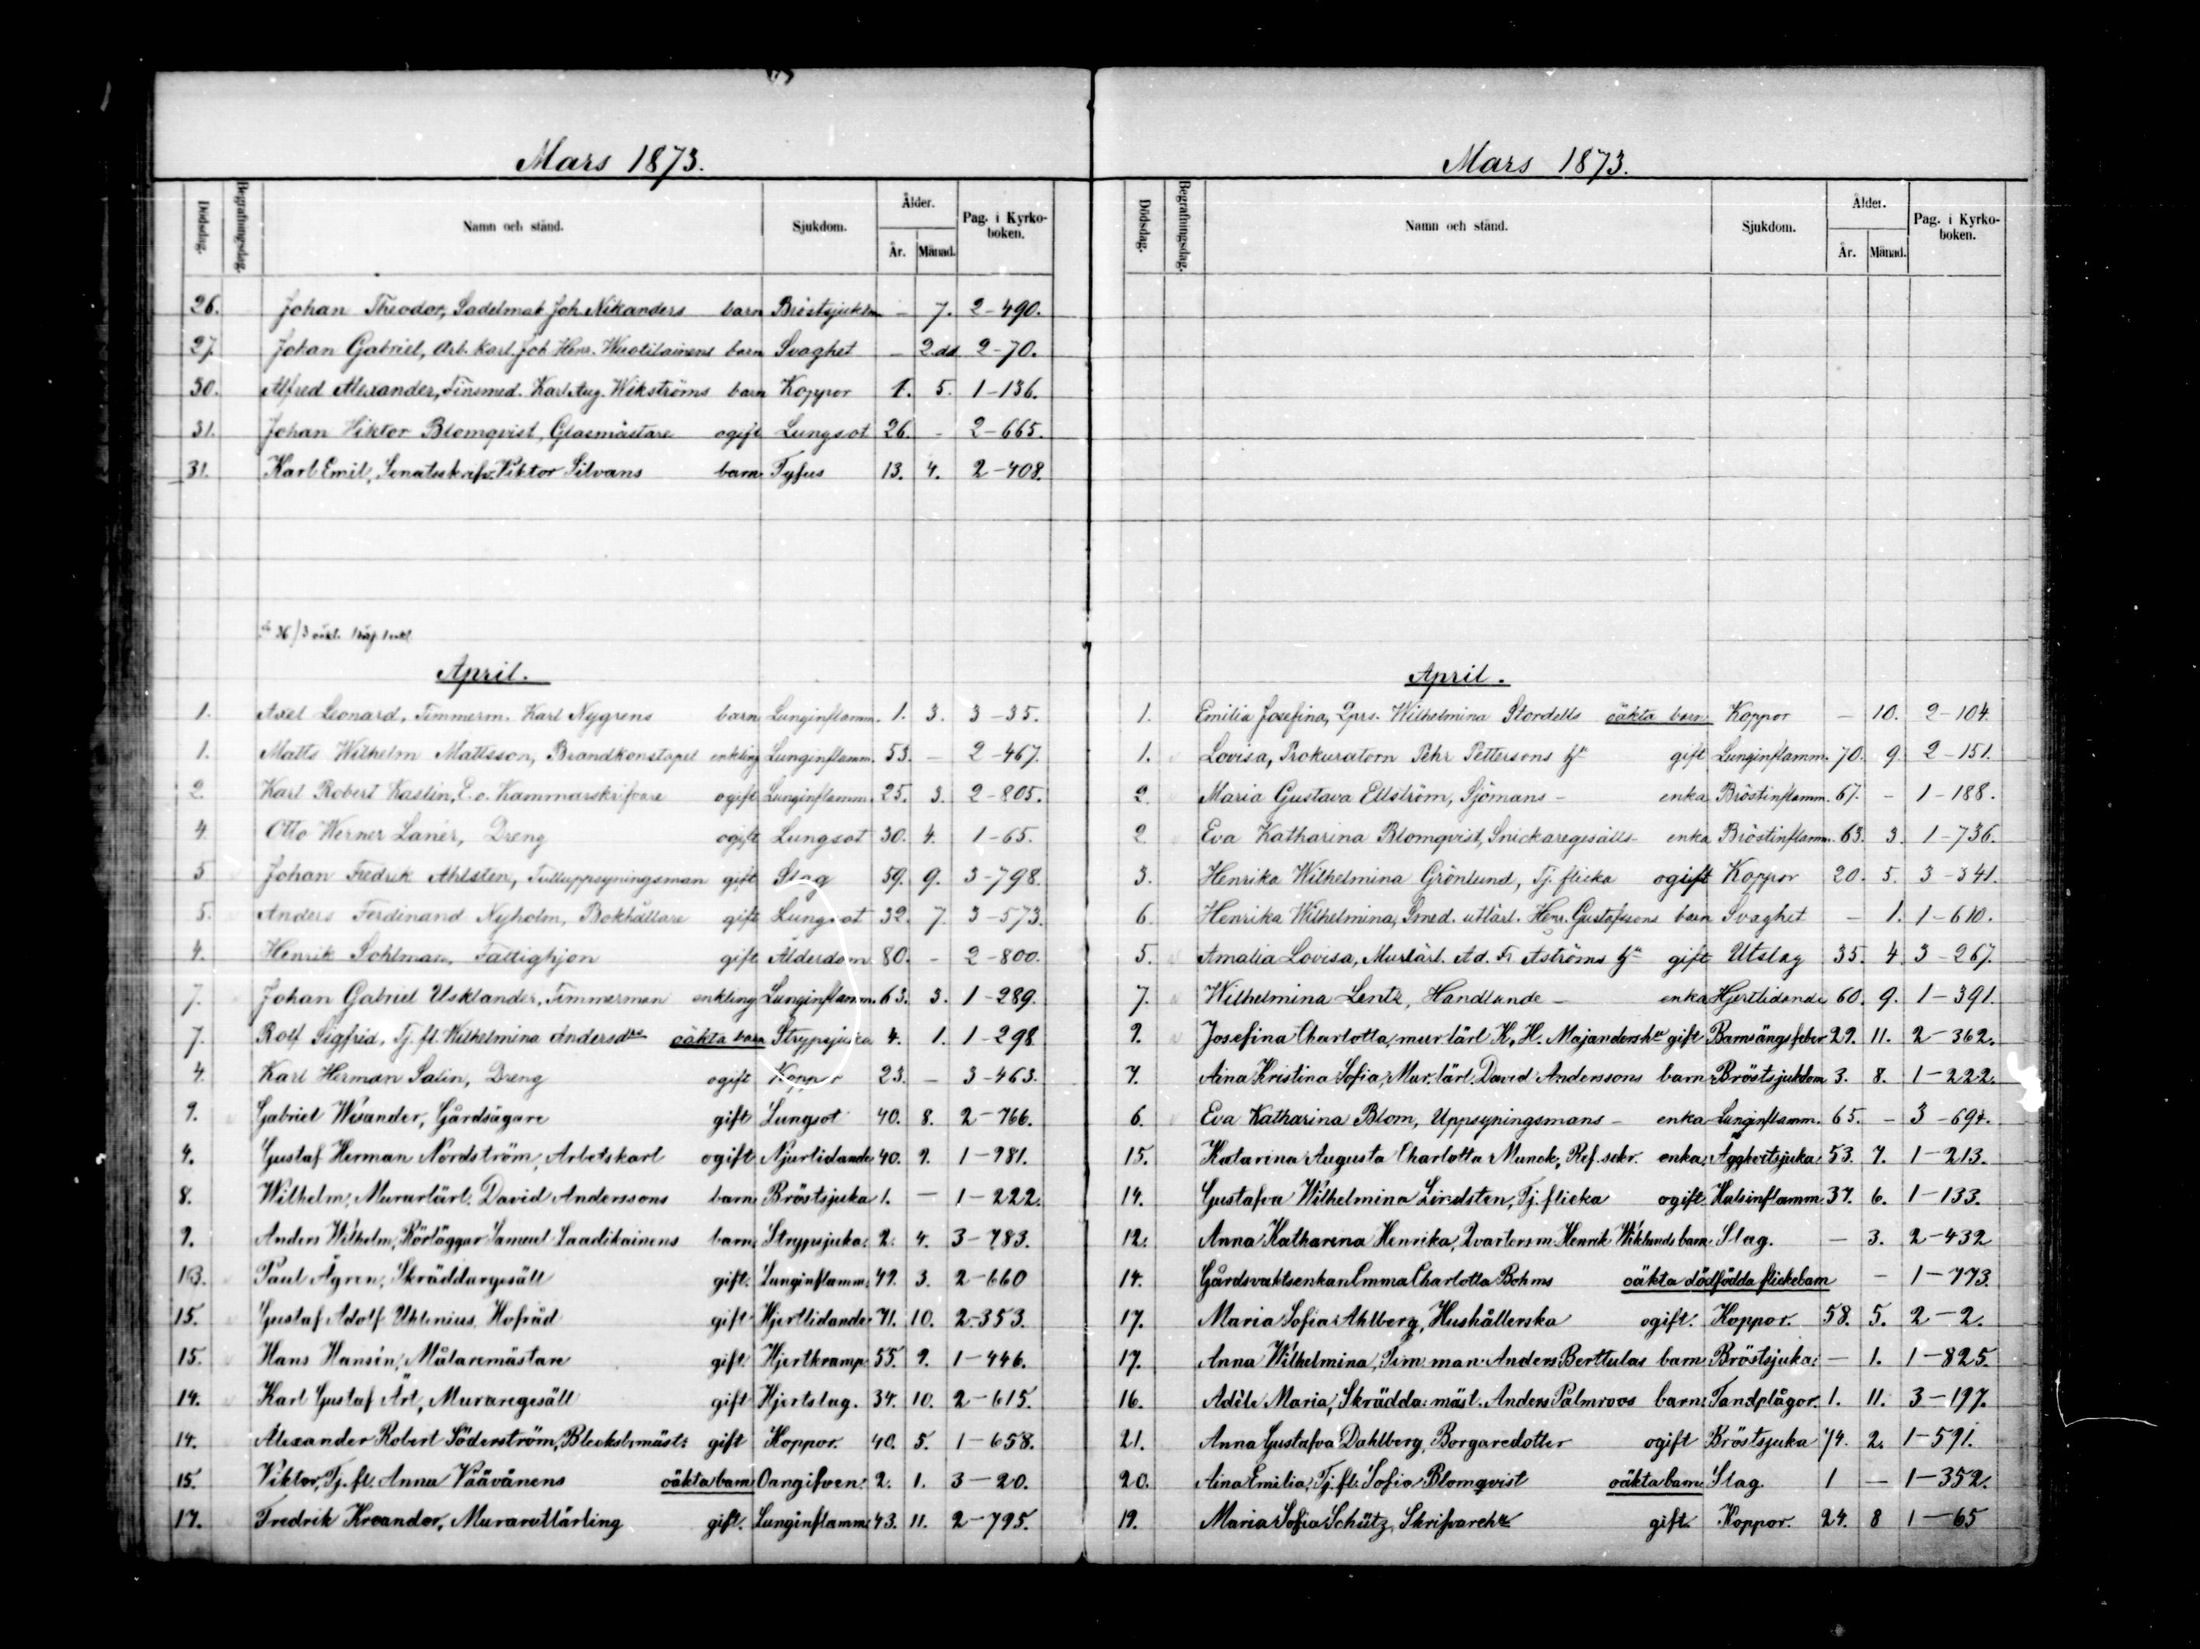 Mars 1873.
Dödsdag. Begrafningsdag. Namn och stånd. Sjukdom. Ålder. År. Månad. Pag. i Kyrkoboken.
26. Johan Theodor, Sadelmak Joh. Nikanders barn Bröstsjukdm — 7. 2-490.
27 Johan Gabriel, Arb. karl Joh. Henr. Wuotilainens barn Svaghet — 2 dd 2-70.
30. Alfred Alexander, Finsmed. Karl Aug. Wikströms barn Koppor 1. 5. 1-136.
31. Johan Viktor Blomqvist, Glasmästare ogift Lungsot 26. - 2-665.
31. Karl Emil, Senatsskrifv. Viktor Silvans barn Tyfus 13. 4. 2-408.
April.
1. Axel Leonard, Timmerm. Karl Nygrens barn Lunginflamm. 1. 3. 3-35.
1. Matts Wilhelm Mattsson, Brandkonstapel enkling Lunginflamm. 53. - 2-467.
2. Karl Robert Kastin, E. o. Kammarskrifvare ogift Lunginflamm. 25. 3. 2-805.
4. Otto Werner Lanér, Dreng ogift Lungsot 30. 4. 1-65.
5 Johan Fredrik Ahlsten, Tulluppsyningsman gift Slag 59. 9. 3-798.
5. Anders Ferdinand Nyholm, Bokhållare gift Lungsot 32. 7. 3-573.
4. Henrik Sohlman, Fattighjon gift Ålderdom 80. - 2-800.
7. Johan Gabriel Usklander, Timmerman enkling Lunginflamm. 63. 3. 1-289.
7. Rolf Sigfrid, Tj. fl. Wilhelmina Andersdrs oäkta barn Strypsjuka 4. 1. 1-298
4. Karl Herman Salin, Dreng ogift Koppor 23. — 3-463.
9. Gabriel Wisander, Gårdsägare gift Lungsot 40. 8. 2-766.
4. Gustaf Herman Nordström, Arbetskarl ogift Njurlidande 40. 9. 1-981.
8. Wilhelm, Murarlärl. David Anderssons barn Bröstsjuka 1. — 1-222.
9. Anders Wilhelm, Rörläggar Samuel Laadikainens barn Strypsjuka 2. 4. 3-783.
13. Paul Ågren, Skräddargesäll gift. Lunginflamm. 49. 3. 2-660
15. Gustaf Adolf Uhlenius, Hofråd gift Hjertlidande 71. 10. 2-353.
15. Hans Hansén, Målaremästare gift. Hjertkramp. 55. 9. 1-446.
14. Karl Gustaf Ärt, Muraregesäll gift Hjertslag. 34. 10. 2-615.
14. Alexander Robert Söderström, Bleckslr.mäst: gift Koppor. 40. 5. 1-658.
15. Viktor, Tj. fl. Anna Väävänens oäkta barn Oangifven. 2. 1. 3-20.
17. Fredrik Kreander, Murarutlärling gift. Lunginflamm. 43. 11. 2-795.
Mars 1873.
Dödsdag. Begrafningsdag. Namn och stånd. Sjukdom. Ålder. År. Månad. Pag. i Kyrkoboken.
April.
1. Emilia Josefina, Wilhelmina Slordells oäkta barn Koppor — 10. 2-104.
1. Lovisa, Prokuratorn Pehr Pettersons hu gift Lunginflamm. 70. 9. 2-151.
2 Maria Gustava Ellström, Sjömans — enka Bröstinflamm. 67. - 1-188.
2 Eva Katharina Blomqvist, Snickaregesälls- enka Bröstinflamm. 63. 3. 1-736.
3. Henrika Wilhelmina Grönlund, Tj. flicka ogift Koppor 20. 5. 3-341.
6 Henrika Wilhelmina, Smed. utlärl. Henr. Gustafssons barn Svaghet — 1. 1-610.
5. Amalia Lovisa, Murlärl. Ad. Fr. Aströms hu gift Utslag 35. 4. 3-267.
7. Wilhelmina Lentz, Handlande — enka Hjertlidande 60. 9. 1-391.
9. Josefina Charlotta, murlärl K. H. Majanders hu gift Barnsängsfeber 29. 11. 2-362.
7. Aina Kristina Sofia, Mur. lärl. David Anderssons barn Bröstsjukdom 3. 8. 1-222.
6. Eva Katharina Blom, Uppsyningsmans — enka Lunginflamm. 65. — 3-694.
15. Katarina Augusta Charlotta Munck, Ref. sekr. enka. Ägghvitsjuka 53. 7. 1-213.
14. Gustafva Wilhelmina Lindsten, Tj. flicka ogift Halsinflamm 37. 6. 1-133.
12. Anna Katharina Henrika, Qvartersm. Henrik Wiklunds barn Slag. — 3. 2-432
14. Gårdsvaktsenkan Emma Charlotta Bohms oäkta dödfödda flickebarn — 1-773.
17. Maria Sofia Ahlberg, Hushållerska ogift. Koppor. 58. 5. 2-2.
17. Anna Wilhelmina, Tim man Anders Berttulas barn Bröstsjuka: — 1. 1-825.
16. Adèle Maria, Skrädda: mäst. Anders Palmroos barn: Tandplågor. 1. 11. 3-197.
21. Anna Gustafva Dahlberg, Borgaredotter ogift Bröstsjuka 74. 2. 1-591.
20. Aina Emilia, Tj. fl. Sofia Blomqvist oäkta barn Slag. 1 — 1-352.
19. Maria Sofia Schütz, Skrifvareh:u gift. Koppor. 24. 8 1-65